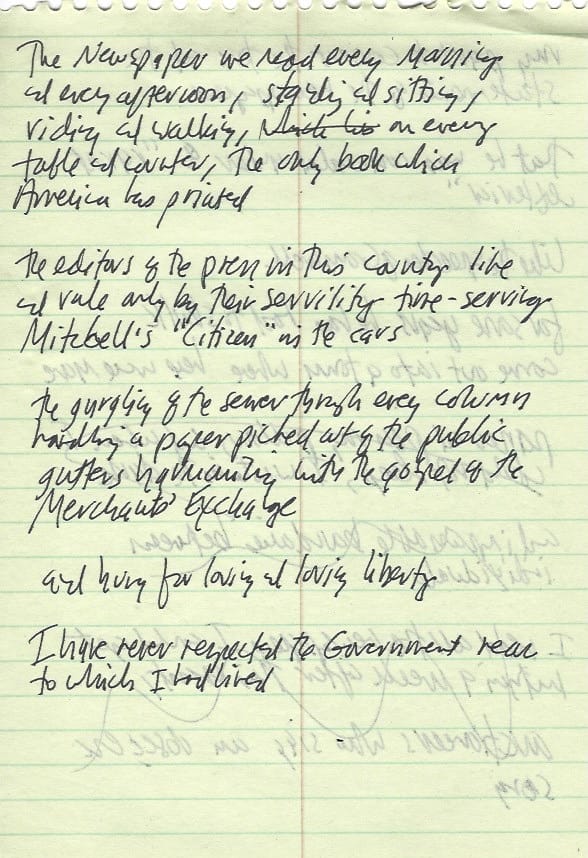 The Newspaper we read every Morning
and every afternoon, standing and sitting,
riding and walking, which lis on every
table and counter, The only book which
America has printed
the editors of the press in this country live
and rule only by their servility time-serving
Mitchell's "Citizen" in the cars
the gurgling of the sewer through every column
handling a paper picked out of the public
gutters harmonizing with the gospel of the
Merchants' Exchange
and hung for loving and loving liberty
I have never respected the Government near
to which I had lived